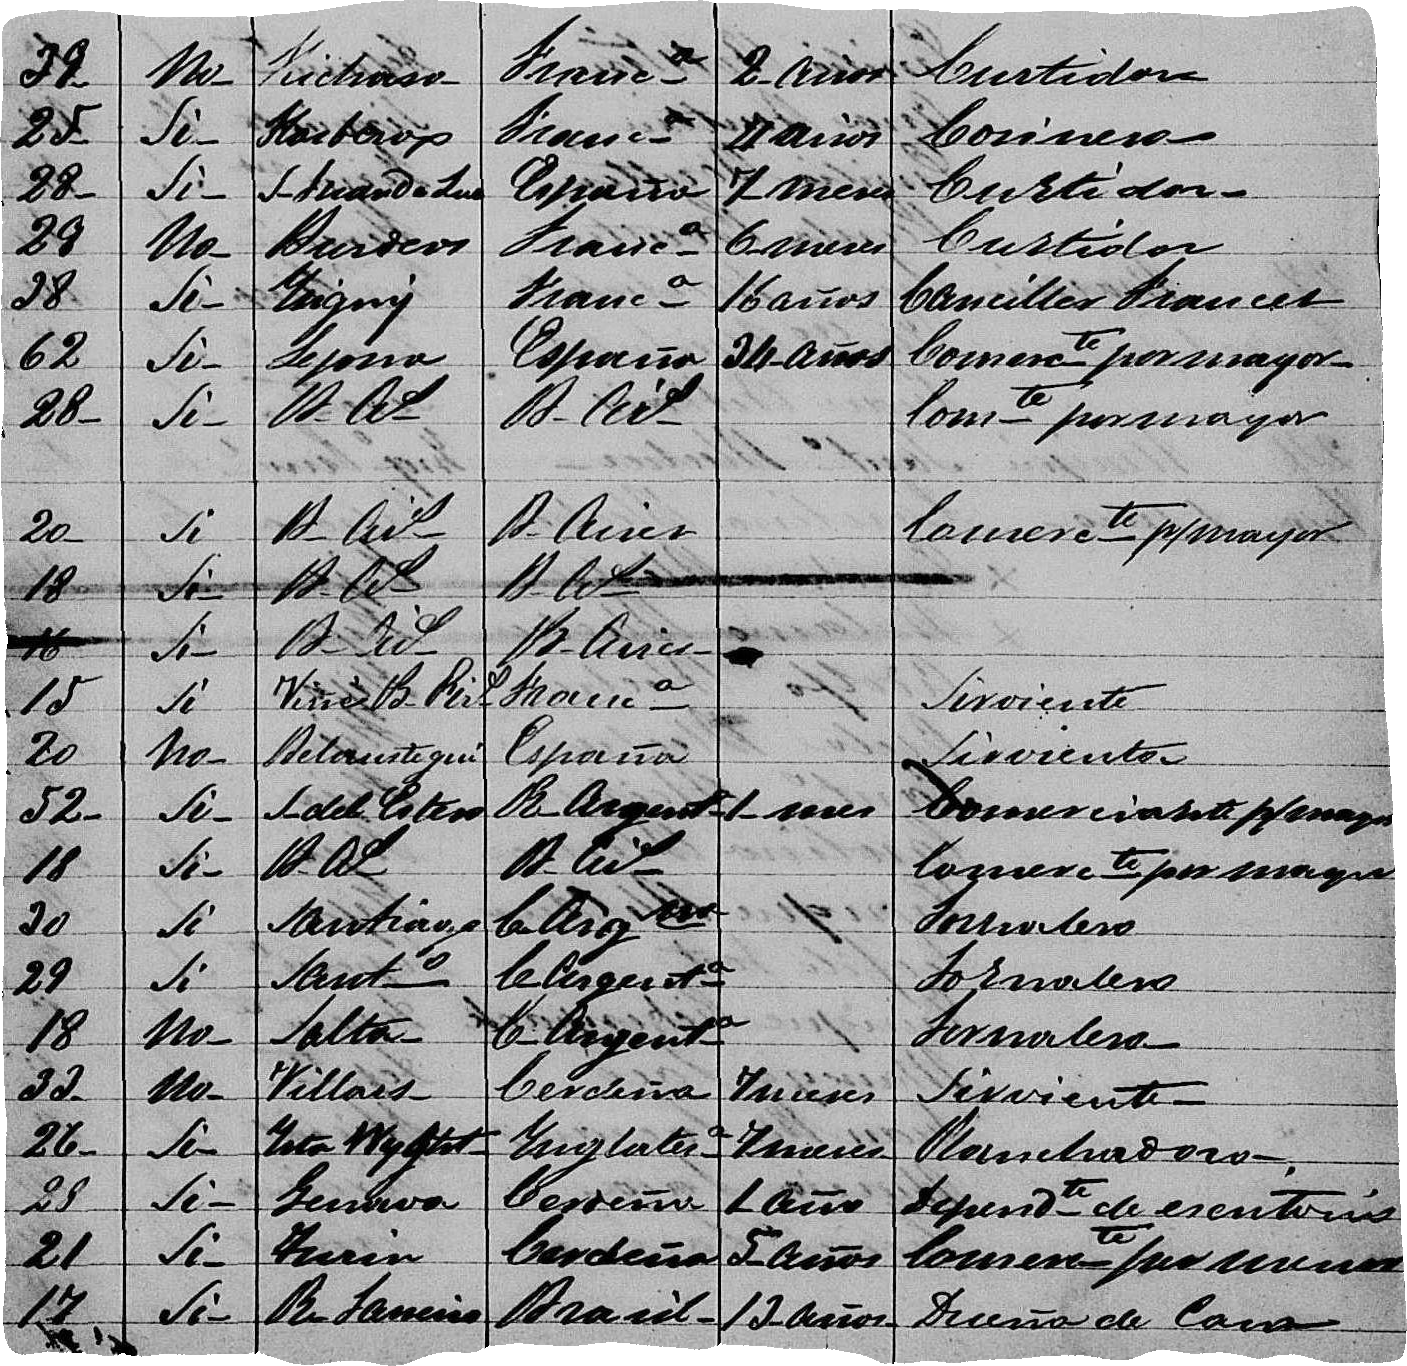 39 No Franc-a 2 Años Curtidor
25 Si Franc-a 4 años Cosinero
28 Si S. Juan de Luz España 7 meses Curtidor
29 No Burdeos Franc-a 6 meses Curtidor
38 Si Franc-a 16 años Canciller Frances
62 Si Lejona España 34 Años Comerc-te por mayor
28 Si B. Ai-s B. Ai-s Com-te por mayor
20 Si B. Ai-s B. Aires Comerc-te p/mayor
18 Si B. A-s B. A-s
16 Si B. Ai-s B. Aires
15 Si B. Franc-a Sirviente
20 No Belaustegui España Sirvienta
52 Si S. del Estero R. Argent-a 1 mes Comerciante p/mayor
18 Si B. A-s B. Ai-s Comerc-te por mayor
30 Si Santiago C. Arg-na Jornalero
29 Si Sant-o C. Argent-a Jornalero
18 No Salta C. Argent-a Jornalero
33 No Villars Cerdeña 7 meses Sirviente
26 Si Wyght Inglater-a 7 meses Planchadora
28 Si Genova Cerdeña 1 Año Depend-te de escritorio
21 Si Turin Cerdeña 5 Años Comerc-te por menor
17 Si R. Janeiro Brasil 13 años Dueña de Casa